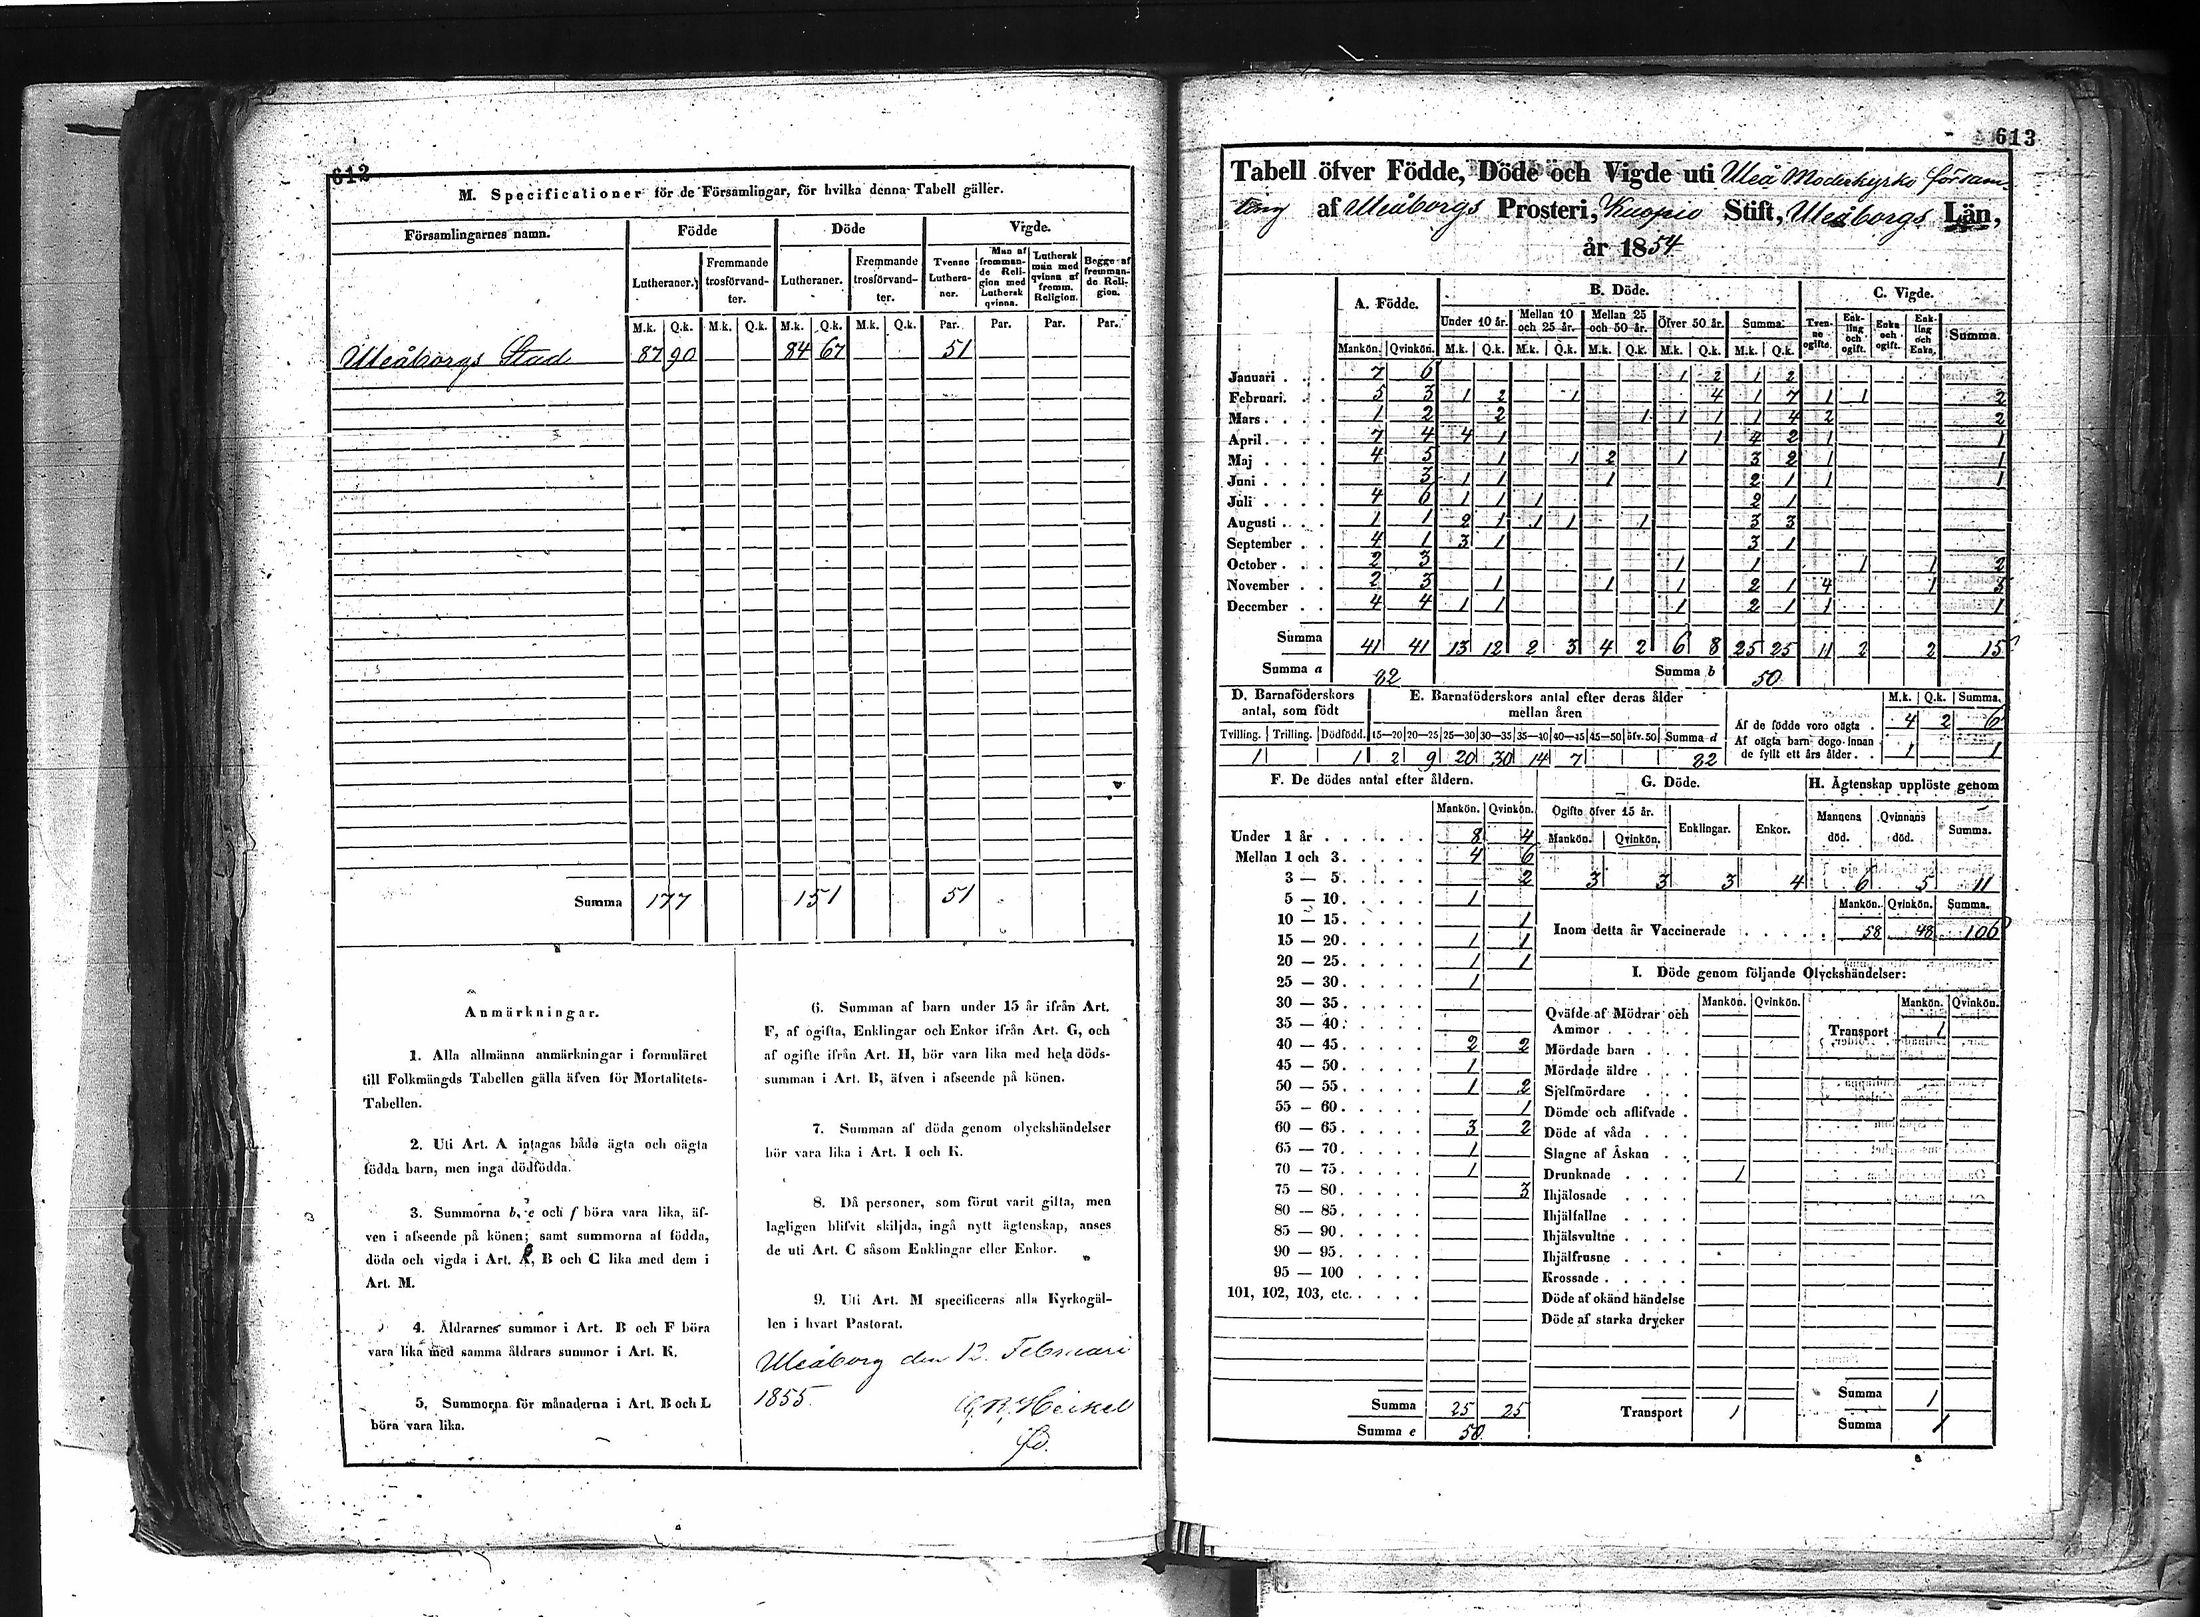 612
M. Specificationer för de Församlingar, för hvilka denna Tabell gäller.
Församlingarnes namn. Födde Döde Vigde.
Lutheraner. Fremmande trosförvandter. Lutheraner. Fremmande trosförvandter. Tvenne Lutheraner. Man af fremmande Religion med Luthersk qvinna. Luthersk man med qvinna af fremm. Religion. Begge af fremmande Religion.
M.k. Q.k. M.k. Q.k. M.k. Q.k. M.k. Q.k. Par. Par. Par. Par.
Uleåborgs Stad 87 90 84 67 51
Summa 177 151 51
Anmärkningar.
1. Alla allmänna anmärkningar i formuläret
till Folkmängds Tabellen gälla äfven för Mortalitets-
Tabellen.
2. Uti Art. A intagas både ägta och oägta
födda barn, men inga dödfödda.
3. Summorna b, e och f böra vara lika, äf-
ven i afseende på könen; samt summorna af födda,
döda och vigda i Art. A, B och C lika med dem i
Art. M.
4. Åldrarnes summor i Art. B och F böra
vara lika med samma åldrars summor i Art. K.
5. Summorna för månaderna i Art. B och L
böra vara lika.
6. Summan af barn under 15 år ifrån Art.
F, af ogifta, Enklingar och Enkor ifrån Art. G, och
af ogifte ifrån Art. H, bör vara lika med hela döds-
summan i Art. B, äfven i afseende på könen.
7. Summan af döda genom olyckshändelser
bör vara lika i Art. I och K.
8. Då personer, som förut varit gifta, men
lagligen blifvit skiljda, ingå nytt ägtenskap, anses
de uti Art. C såsom Enklingar eller Enkor.
9. Uti Art. M specificeras alla Kyrkogäl-
len i hvart Pastorat.
Uleåborg den 12. Februari
1855.
Heikel
613
Tabell öfver Födde, Döde och Vigde uti Uleå Moderkyrko församl-
ling af Uleåborgs Prosteri, Kuopio Stift, Uleåborgs Län,
år 1854
A. Födde. B. Döde. C. Vigde.
Under 10 år. Mellan 10 och 25 år. Mellan 25 och 50 år. Öfver 50 år. Summa. Tvenne ogifte. Enkling och ogift. Enka och ogift. Enkling och Enka. Summa.
Mankön. Qvinkön. M.k. Q.k. M.k. Q.k. M.k. Q.k. M.k. Q.k. M.k. Q.k.
Januari 7 6 1 2 1 2
Februari. 5 3 1 2 1 4 1 7 1 1 2
Mars 1 2 2 1 1 1 1 4 2 2
April 7 4 4 1 1 4 2 1 1
Maj 4 5 1 1 2 1 3 2 1 1
Juni 3 1 1 1 2 1 1 1
Juli 4 6 1 1 1 2 1
Augusti 1 1 2 1 1 1 1 3 3
September 4 1 3 1 3 1
October 2 3 1 1 1 1 2
November 2 3 1 1 1 2 1 4 1 5
December 4 4 1 1 1 2 1 1 1
Summa 41 41 13 12 2 3 4 2 6 8 25 25 11 2 2 15
Summa a 82 Summa b 50
D. Barnaföderskors antal, som födt
Tvilling. Trilling. Dödfödd.
1 1
E. Barnaföderskors antal efter deras ålder mellan åren
15—20 20—25 25—30 30—35 35—40 40—45 45—50 öfv. 50 Summa d
2 9 20 30 14 7 82
M.k. Q.k. Summa.
Af de födde voro oägta . 4 2 6
Af oägta barn dogo innan
de fyllt ett års ålder. . 1 1
F. De dödes antal efter åldern.
Mankön. Qvinkön.
Under 1 år 8 4
Mellan 1 och 3. 4 6
3 — 5. 2
5 — 10. 1
10 — 15. 1
15 — 20. 1 1
20 — 25. 1 1
25 — 30. 1
30 — 35.
35 — 40.
40 — 45. 2 2
45 — 50. 1
50 — 55. 1 2
55 — 60. 1
60 — 65. 3 2
65 — 70. 1
70 — 75. 1
75 — 80. 3
80 — 85.
85 — 90.
90 — 95.
95 — 100
101, 102, 103, etc.
Summa 25 25
Summa e 50.
G. Döde.
Ogifte öfver 15 år. Enklingar. Enkor.
Mankön. Qvinkön.
3 3 3 4
H. Ägtenskap upplöste genom
Mannens död. Qvinnans död. Summa.
6 5 11
Mankön. Qvinkön. Summa.
Inom detta år Vaccinerade 58 48 106
I. Döde genom följande Olyckshändelser:
Mankön. Qvinkön. Mankön. Qvinkön.
Qväfde af Mödrar och
Ammor Transport 1
Mördade barn
Mördade äldre
Sjelfmördare
Dömde och aflifvade .
Döde af våda
Slagne af Åskan
Drunknade 1
Ihjälosade
Ihjälfallne
Ihjälsvultne
Ihjälfrusne
Krossade
Döde af okänd händelse
Döde af starka drycker
Summa 1
Transport 1 Summa 1